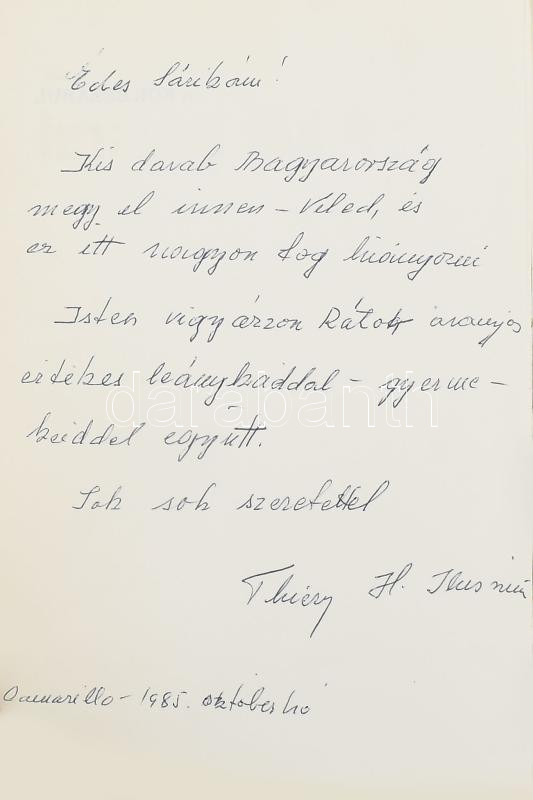 Édes Sárikám!
Kis darab Magyarország
megy el innen - Veled, és
ez itt nagyon fog hiányozni
Isten vigyázzon Rátok aranyos
értékes leánykáddal - gyerme-
keiddel együtt.
Sok sok szeretettel
Thiéry H.
Camarillo - 1985. október hó
darabanth